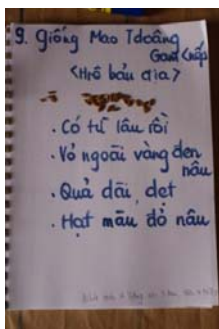 9. Giống Mao Tđoảng
Gam<nếp
<Hrê bản địa>
. Có từ lâu rồi
. Vỏ ngoài vàng đen
nâu
. Quả dài, dẹt
. Hạt màu đỏ nâu